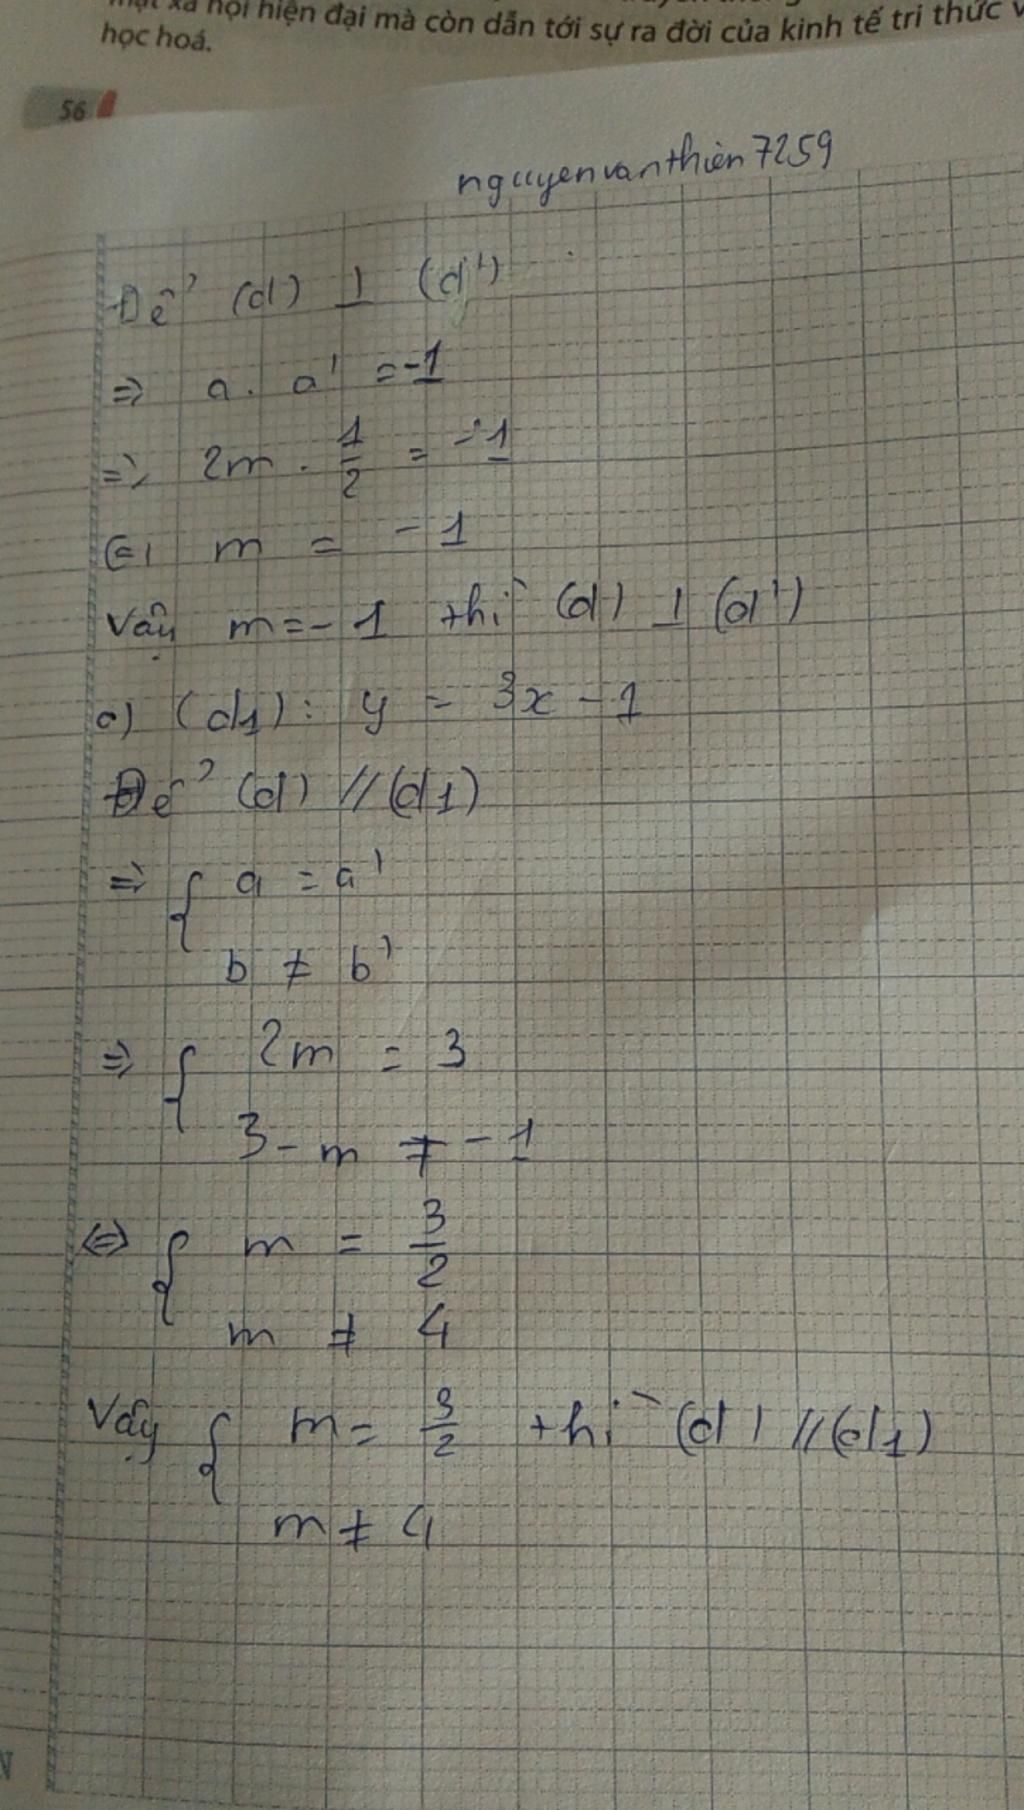 xã hội hiện đại mà còn dẫn tới sự ra đời của kinh tế tri thức
học hoá.
56
nguyenvanthien7259
Để (d) ⊥ (d')
=> a . a' = -1
=> 2m . 1/2 = -1
<=> m = -1
Vậy m = -1 thì (d) ⊥ (d')
c) (d1): y = 3x - 1
Để (d) // (d1)
=> { a = a'
b ≠ b'
=> { 2m = 3
3 - m ≠ -1
<=> { m = 3/2
m ≠ 4
Vậy { m = 3/2 thì (d) // (d1)
m ≠ 4
N